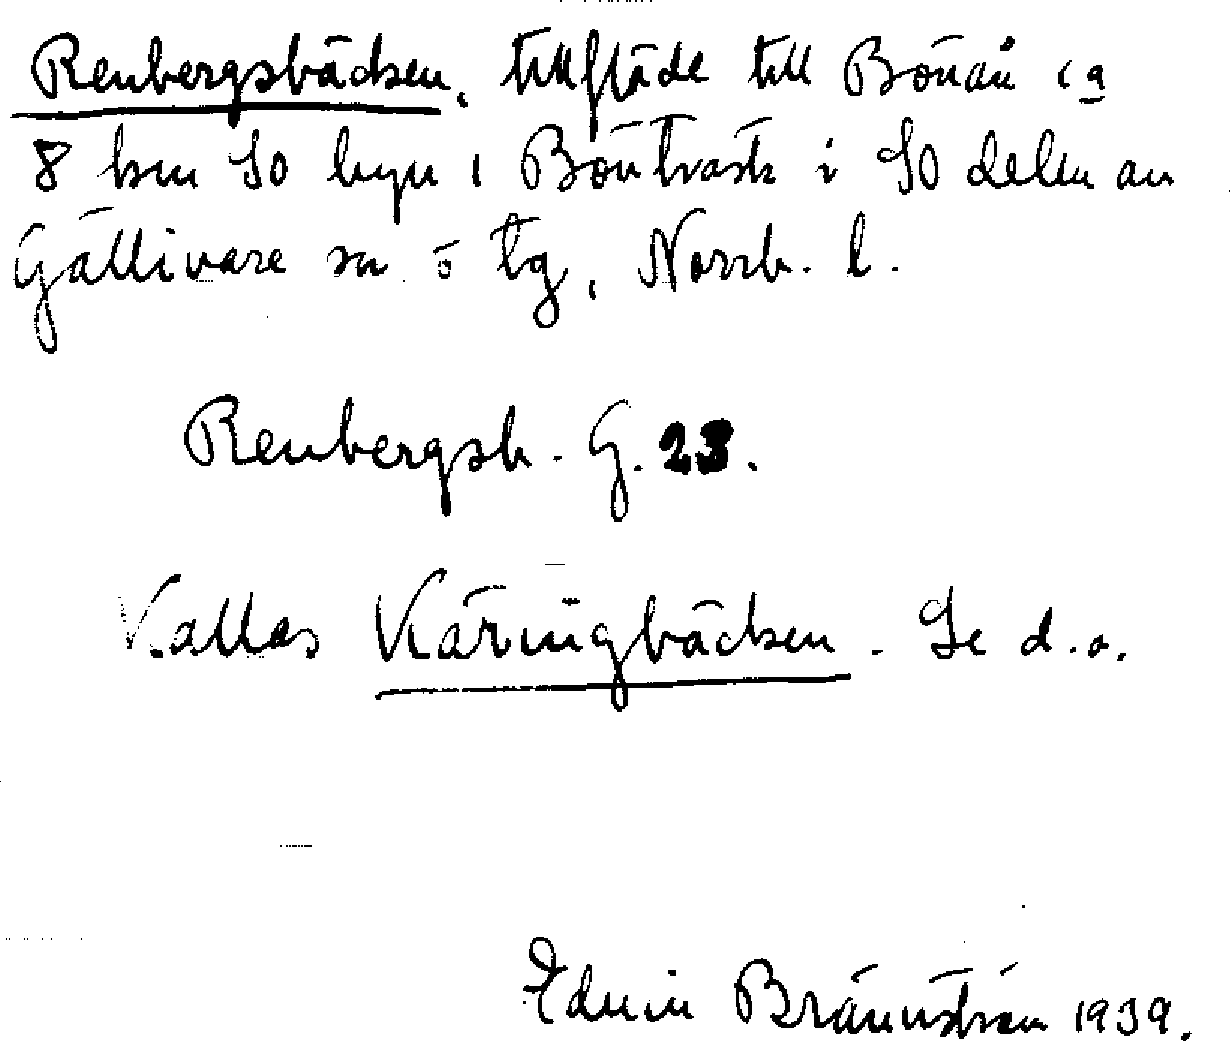 Renbergsbäcken, tillflöde till Bönån ca
8 km SO byn i Bönträsk i SO delen av
Gällivare sn o tg, Norrb. l.
Renbergsb. G. 23.
Kallas Käringbäcken. Se d.o.
Edvin Brännström 1939.